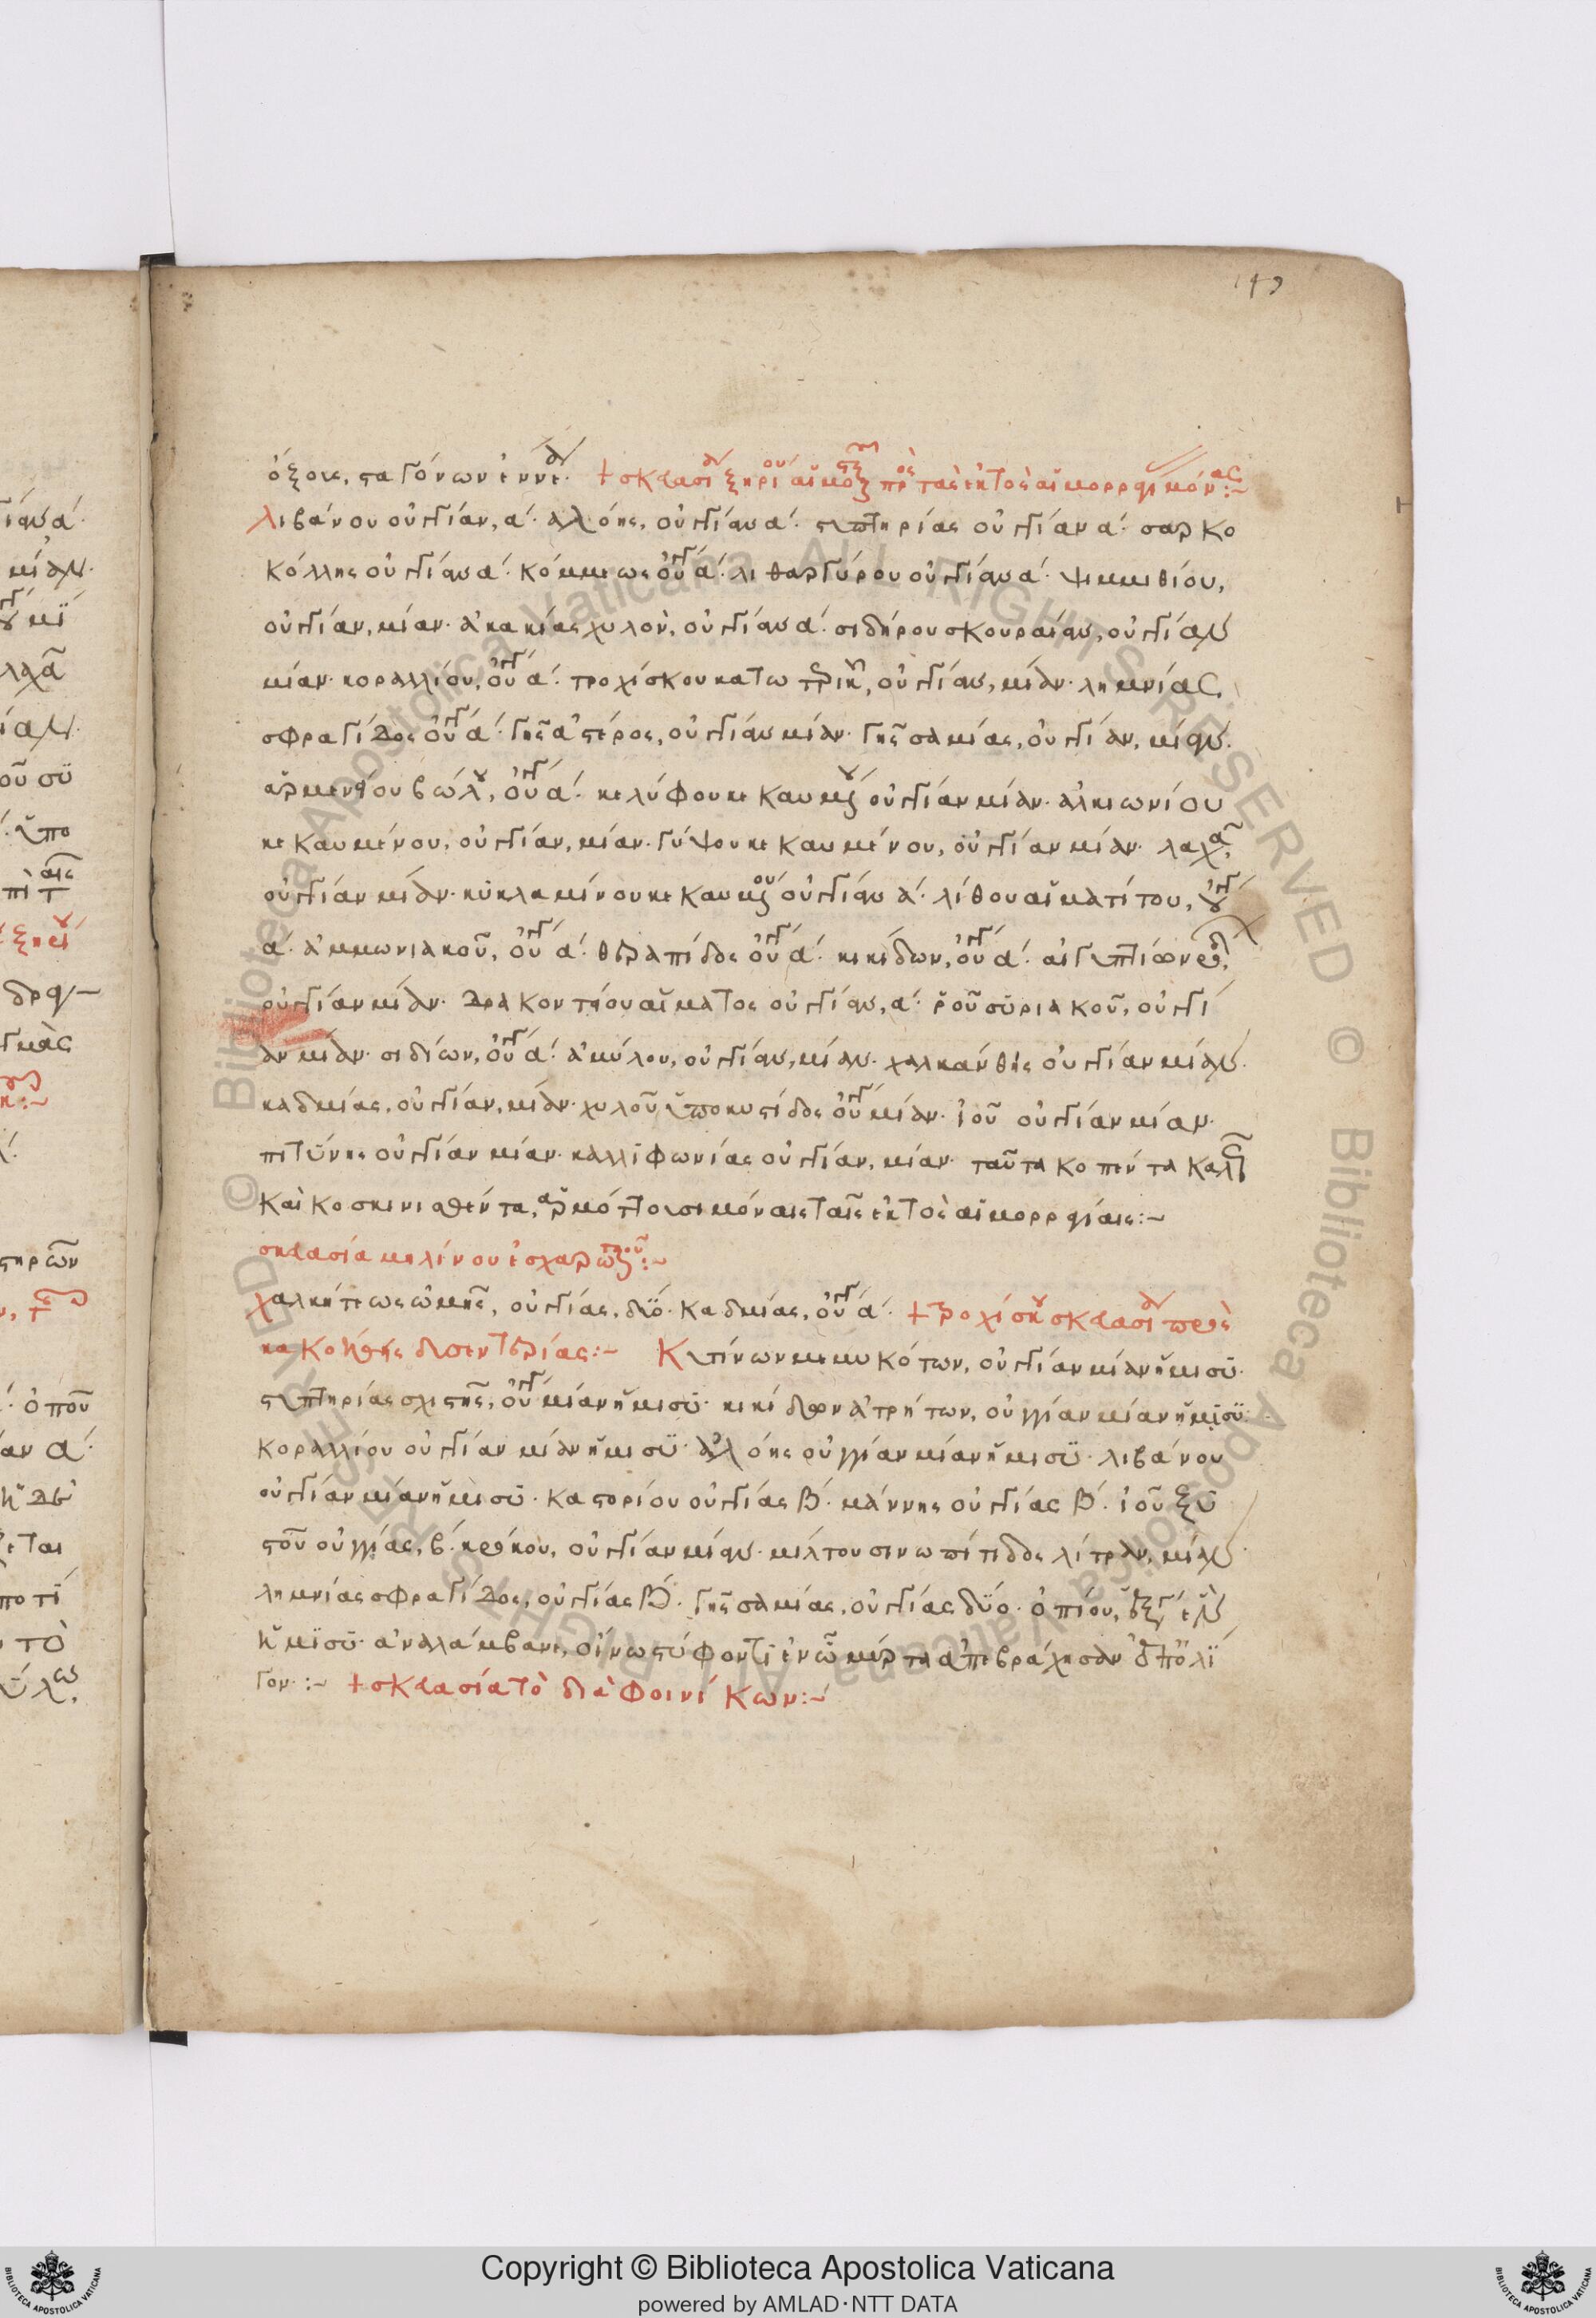 149
ὄξους, σταγόνων ἐννέα. + σκευασία ξηρίου πρὸς τὰς ἐκτὸς αἱμορροΐδας μόνας:~
λιβάνου οὐγγίαν, α΄. ἀλόης, οὐγγίαν α΄. στυπτηρίας οὐγγίαν α΄. σαρκο
κόλλης οὐγγίαν α΄. κόμμεως οὐγγ α΄. λιθαργύρου οὐγγίαν α΄. ψιμμιθίου,
οὐγγίαν, μίαν. ἀκακίας χυλοῦ, οὐγγίαν α΄. σιδήρου σκουρίαν, οὐγγίαν
μίαν. κοραλλίου, οὐγγ α΄. τροχίσκου οὐγγίαν, μίαν. λημνίας
σφραγίδος οὐγγ α΄. γῆς ἀστέρος, οὐγγίαν μίαν. γῆς σαμίας, οὐγγίαν, μίαν.
ἀρμενίου βώλου, οὐγγ α΄. κελύφου κεκαυμένου οὐγγίαν μίαν. ἀλκιωνίου
κεκαυμένου, οὐγγίαν, μίαν. γύψου κεκαυμένου, οὐγγίαν μίαν.
οὐγγίαν μίαν. κυκλαμίνου κεκαυμένου οὐγγίαν α΄. λίθου αἱματίτου, οὐγγ
α΄. ἀμμωνιακοῦ, οὐγγ α΄. οὐγγ α΄. κικίδων, οὐγγ α΄.
οὐγγίαν μίαν. δρακοντίου αἵματος οὐγγίαν, α΄. ῥοῦ συριακοῦ, οὐγγί
αν μίαν. σιδίων, οὐγγ α΄. ἀμύλου, οὐγγίαν, μίαν. χαλκάνθης οὐγγίαν μίαν.
καδμίας, οὐγγίαν, μίαν. χυλοῦ ὑποκυστίδος οὐγγ μίαν. ἰοῦ οὐγγίαν μίαν.
πιτύνης οὐγγίαν μίαν. καλλιφωνίας οὐγγίαν, μίαν. ταῦτα κοπέντα καλῶς
καὶ κοσκινισθέντα, ἁρμόττουσι μόναις ταῖς ἐκτὸς αἱμορροΐαις:~
σκευασία μηλίνου ἐσχαρωτικοῦ:~
χαλκήτεως ὠμῆς, οὐγγίας, δύο. καδμίας, οὐγγ α΄. + τροχίσκου σκευασία πρὸς
κακοήθης δισεντερίας:~ Κυπίνων μεμυκότων, οὐγγίαν μίαν ἥμισυ.
στυπτηρίας σχιστῆς, οὐγγ μίαν ἥμισυ. κικίδων ἀτρήτων, οὐγγίαν μίαν ἥμισυ.
κοραλλίου οὐγγίαν μίαν ἥμισυ. ἀλόης οὐγγίαν μίαν ἥμισυ. λιβάνου
οὐγγίαν μίαν ἥμισυ. καστορίου οὐγγίας β΄. μάννης οὐγγίας β΄. ἰοῦ ξυ
στοῦ οὐγγίας, β΄. κρόκου, οὐγγίαν μίαν. μίλτου σινωπίτιδος λίτραν, μίαν.
λημνίας σφραγίδος, οὐγγίας β΄. γῆς σαμίας, οὐγγίας δύο. ὀπίου,
ἥμισυ. ἀναλάμβανε, οἴνω στύφοντι ἐν ὧ μύρτα ἀπεβράχησαν ἐπ' ὀλί
γον:~ + σκευασία τὸ διὰ φοινίκων:~
Copyright © Biblioteca Apostolica Vaticana
powered by AMLAD·NTT DATA